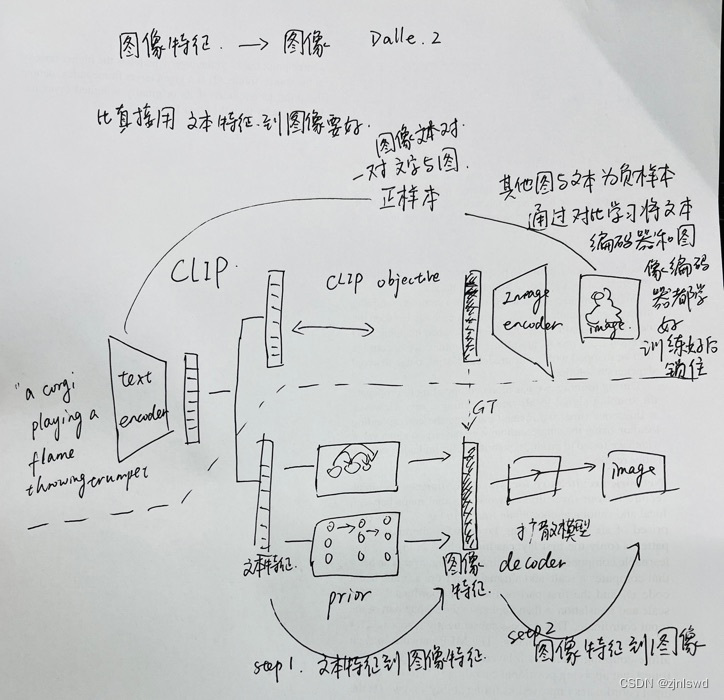 图像特征. → 图像 Dalle.2
比直接用 文本特征.到图像要好.
图像文本对.
一对文字与图.
正样本
其他图与文本为负样本
通过对比学习将文本
编码器和图
像编码
器都学
好
训练好后
锁住
CLIP.
CLIP objective
Image
encoder
image.
"a corgi
playing a
flame
throwing trumpet
text
encoder
GT
image
文本特征.
prior
图像
特征.
扩散模型
decoder
step1. 文本特征到图像特征.
setp2
图像特征到图像
CSDN @zjnlswd